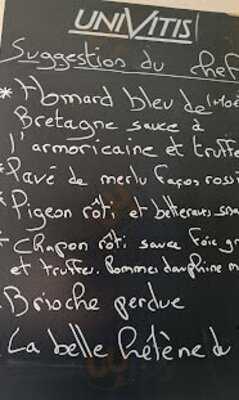 UNIVITIS
Suggestion du chef
* Homard bleu de
Bretagne sauce à
l'armoricaine et truffe
* Pavé de merlu façon rossi
* Pigeon rôti et betteraves
* Chapon rôti sauce foie gr
et truffes. Pommes dauphine m
Brioche perdue
La belle hélène du